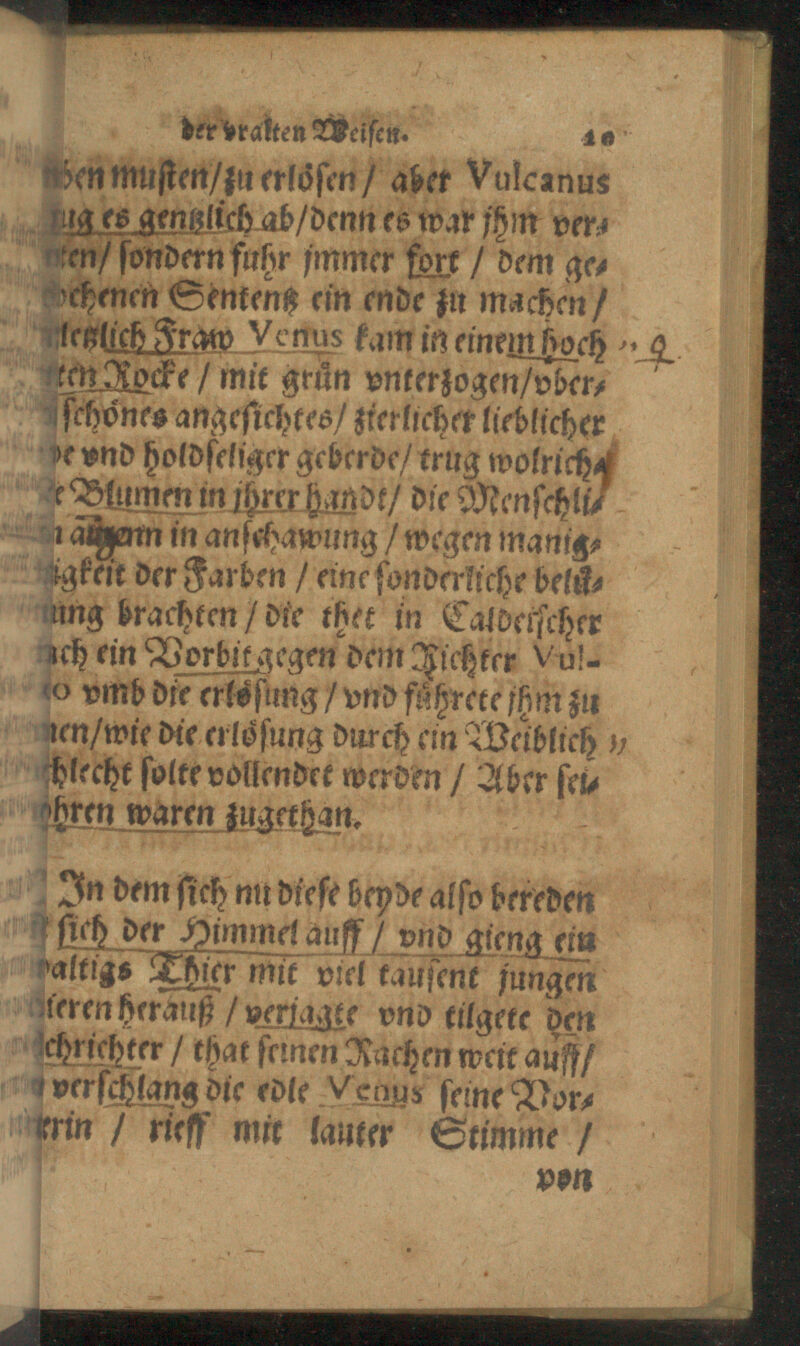 der vralten Weiſen. 40
muſten/zu erlöſen / aber Vulcanus
es gentzlich ab/denn es war jhm ver⸗
ſondern fuhr jmmer fort / dem ge⸗
Sententz ein ende zu machen /
Fraw Venus kam in einem hoch " ♀
Rocke / mit grün vnterzogen/vber⸗
ſchönes angeſichtes/ zierlicher lieblicher
vnd holdſeliger geberde/ trug wolrich
Blumen in jhrer handt/ die Menſchli⸗
in anſchawung / wegen manig⸗
der Farben / eine ſonderliche belü⸗
brachten / die thet in Caldeiſcher
ein Vorbit gegen dem Richter Vul-
vmb die erlöſung / vnd führete jhm zu
wie die erlöſung durch ein Weiblich "
ſolte vollendet werden / Aber ſei⸗
waren zugethan.
In dem ſich nu dieſe beyde alſo bereden
ſich der Himmel auff / vnd gieng ein
Thier mit viel tauſent jungen
herauß / verjagte vnd tilgete den
/ that ſeinen Rachen weit auff/
verſchlang die edle Venus ſeine Vor⸗
/ rieff mit lauter Stimme /
von